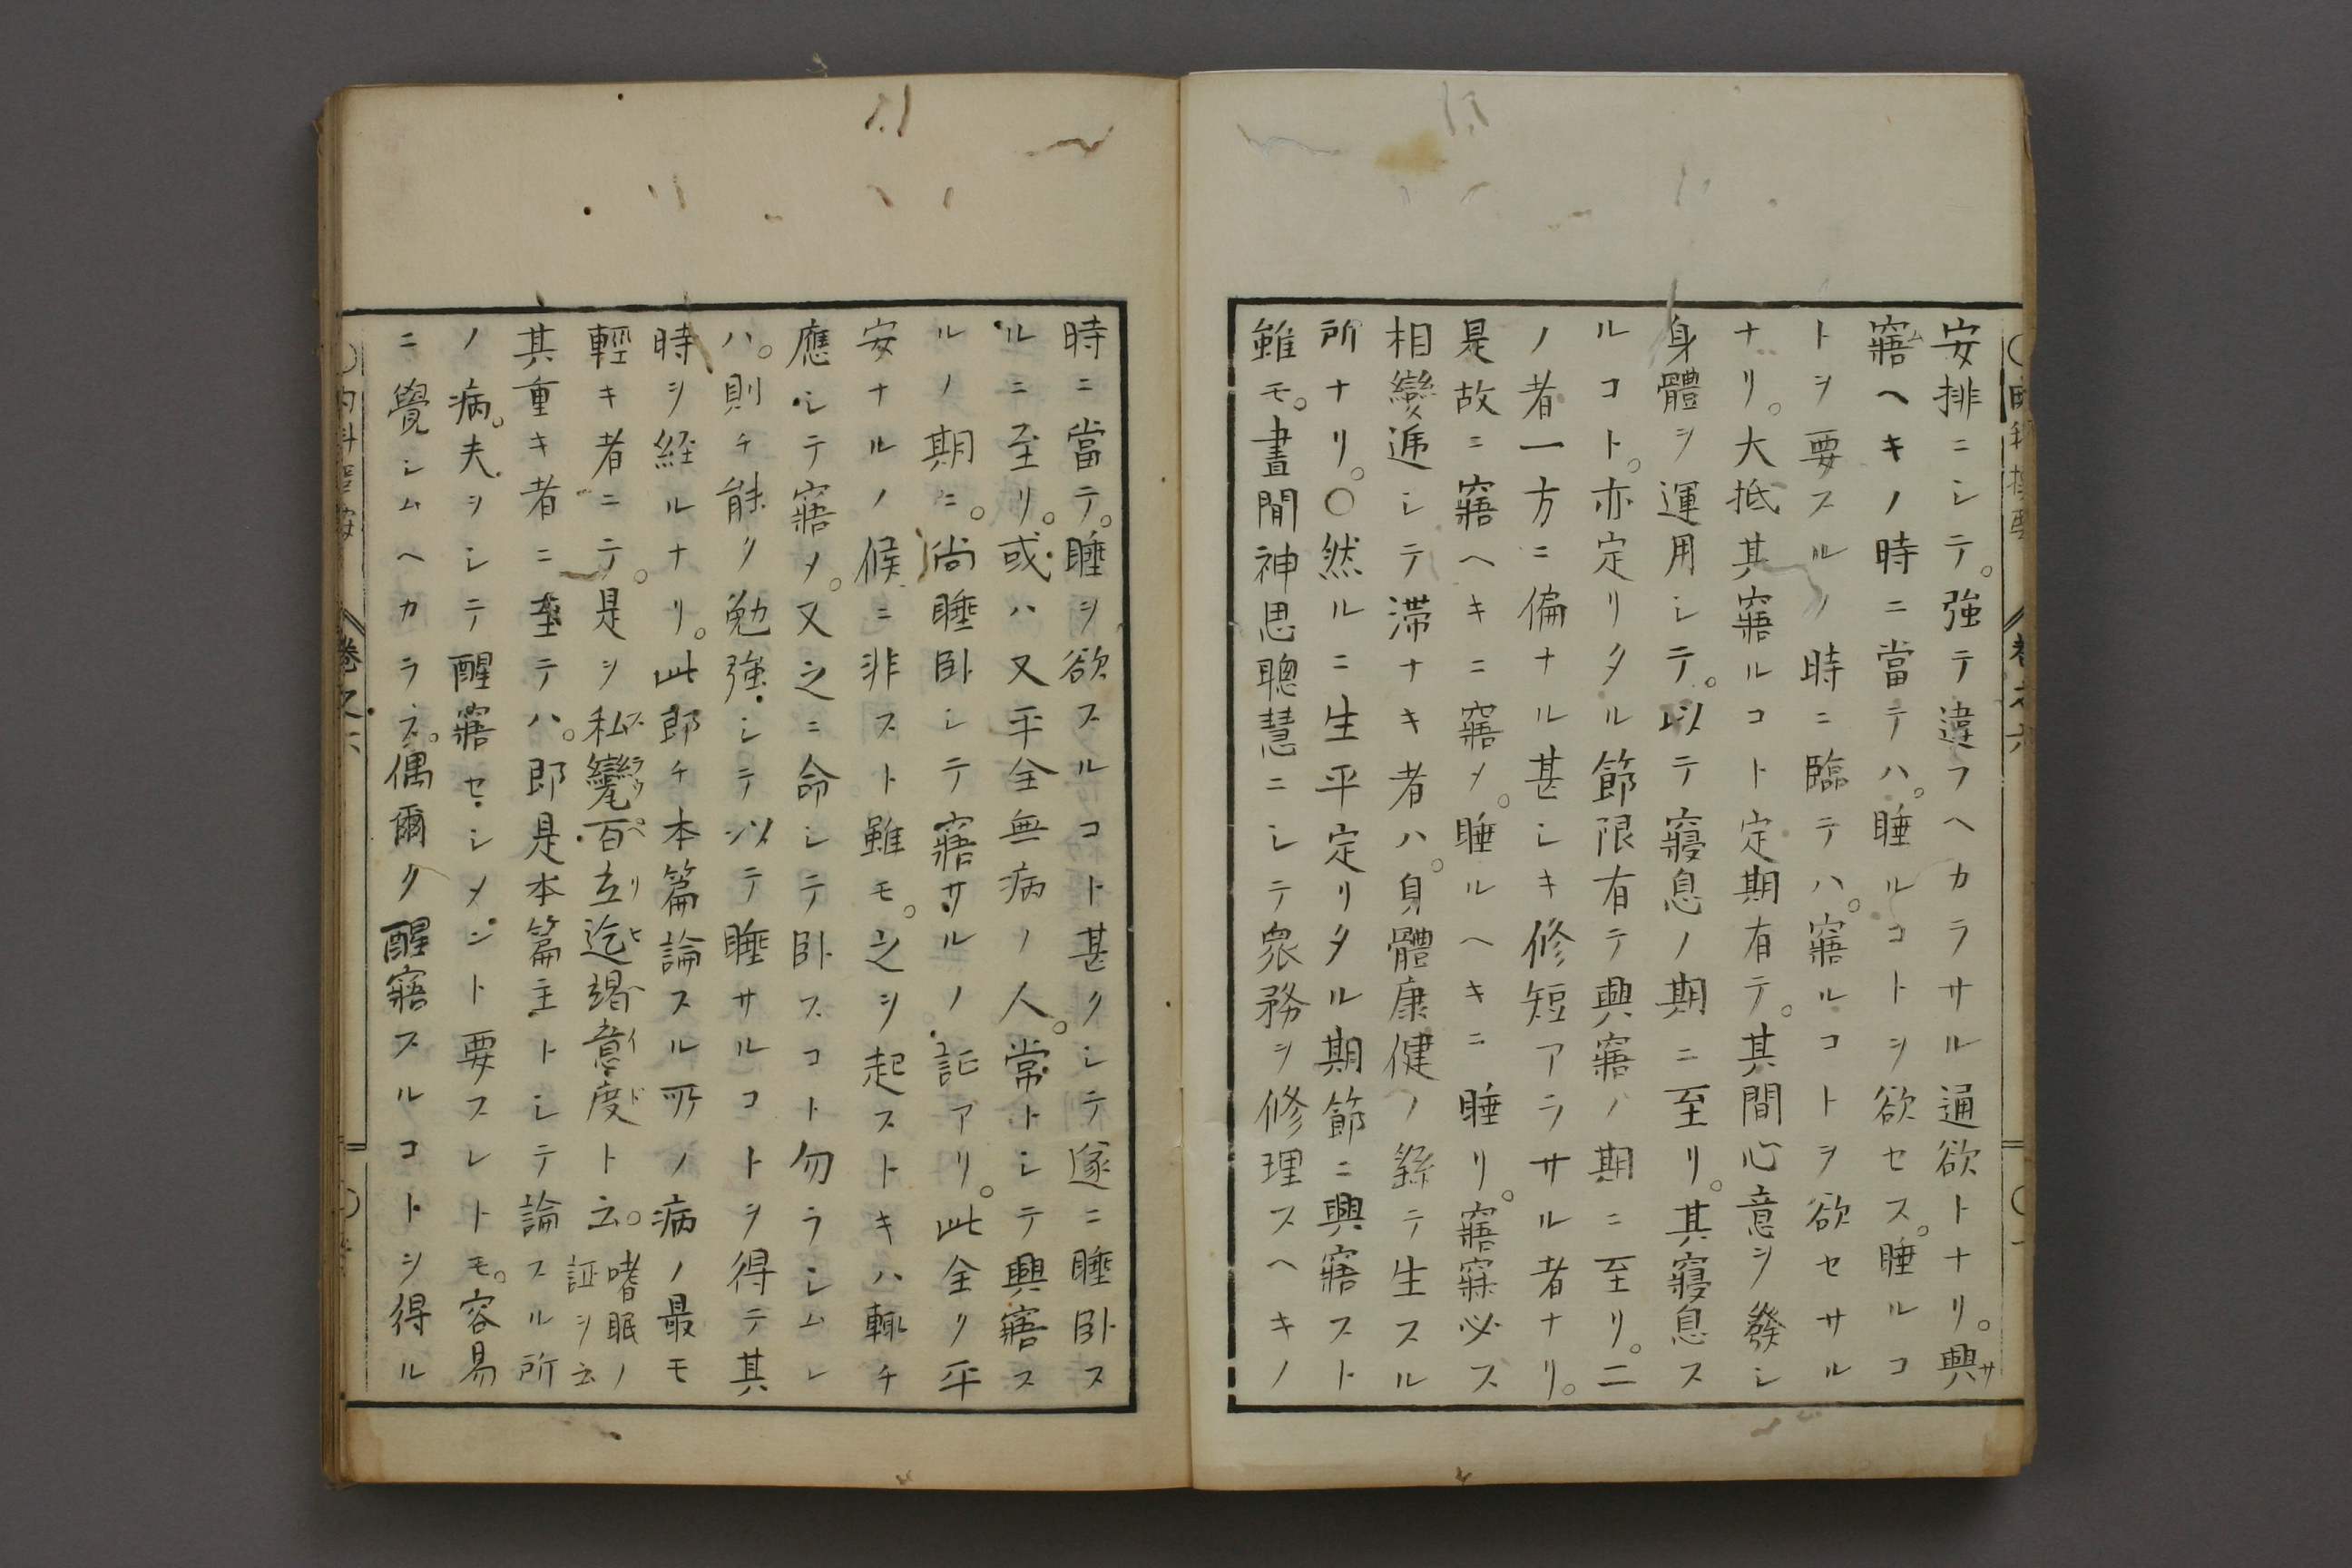 安排ニシテ。強テ違フヘカラサル通欲トナリ。興サ
寤ムヘキノ時ニ當テハ。睡ルコトヲ欲セス。睡ルコ
トヲ要スルノ時ニ臨テハ。寤ルコトヲ欲セサル
ナリ。大抵其寤ルコト定期有テ。其間心意ヲ發シ
身體ヲ運用シテ。以テ寢息ノ期ニ至リ。其寢息ス
ルコト。亦定リタル節限有テ興寤ノ期ニ至リ。二
ノ者一方ニ偏ナル甚シキ修短アラサル者ナリ。
是故ニ寤ヘキニ寤メ。睡ルヘキニ睡リ。寤寐必ス
相變遞シテ滞ナキ者ハ。身體康健ノ繇テ生スル
所ナリ。〇然ルニ生平定リタル期節ニ興寤スト
雖モ。晝間神思聰慧ニシテ衆務ヲ修理スヘキノ
時ニ當テ。睡ヲ欲スルコト甚クシテ遂ニ睡臥ス
ルニ至リ。或ハ又平全無病ノ人。常トシテ興寤ス
ルノ期ニ。尚睡臥シテ寤サルノ証アリ。此全ク平
安ナルノ候ニ非スト雖モ。之ヲ起ストキハ輙チ
應シテ寤メ。又之ニ命シテ臥スコト勿ラシムレ
ハ。則チ能ク勉強シテ以テ睡サルコトヲ得テ其
時ヲ経ルナリ。此郎チ本篇論スル所ノ病ノ最モ
輕キ者ニテ。是ヲ私變百立迄謁意度スラウペリヒヘイドト云。嗜眠ノ証ヲ云
其重キ者ニ至テハ。郎是本篇主トシテ論スル所
ノ病。夫ヲシテ醒寤セシメント要スレトモ。容易
ニ覺シムヘカラス。偶爾ク醒寤スルコトヲ得ル
巻之六